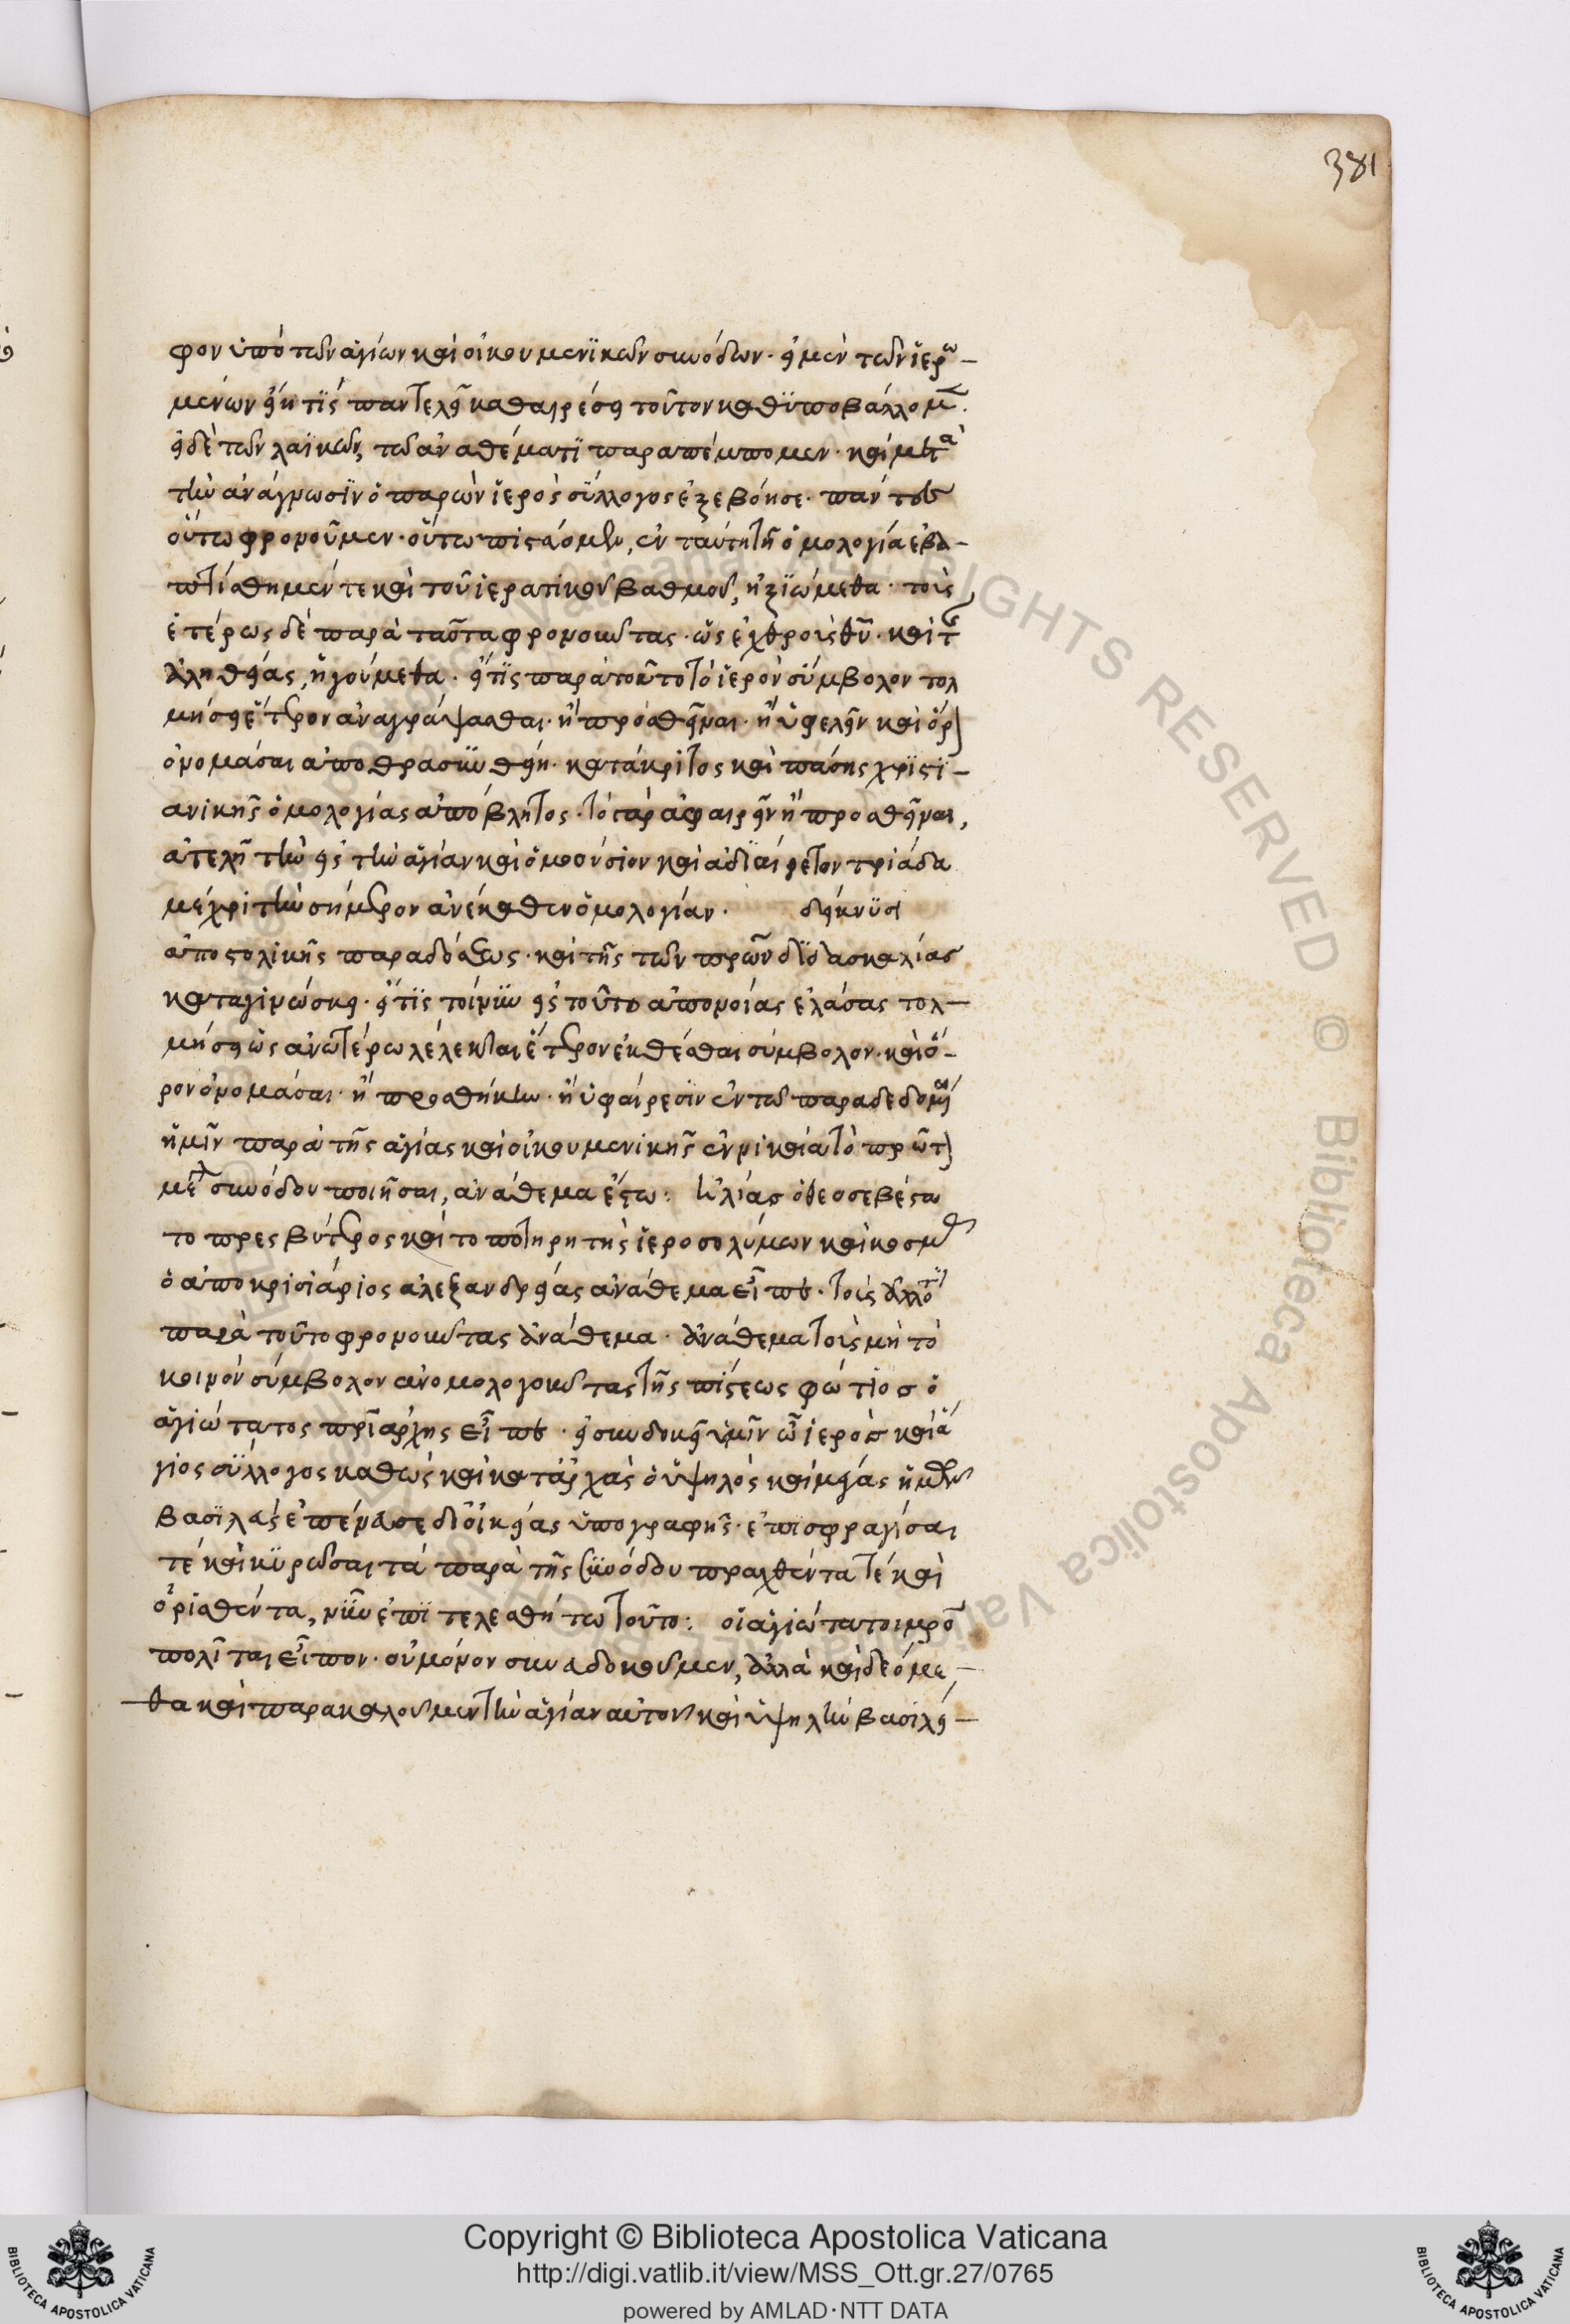 381
φον ὑπὸ τῶν ἁγίων καὶ οἰκουμενϊκῶν συνόδων· εἰ μὲν τῶν ἱερω
μένων εἴη τϊς παντελεῖ καθαιρέσει τοῦτον καθϋποβάλλομ.
εἰ δὲ τῶν λαϊκῶν, τῷ ἀναθέματϊ παραπέμπομεν· καὶ μετὰ
τὴν ἀνάγνωσϊν ὁ παρὼν ἱερὸς σύλλογος ἐξεβόησε· πάντες
οὕτω φρονοῦμεν· οὕτω πιστεύομεν, ἐν ταύτη τῆ ὁμολογία ἐβα
πτίσθημέν τε καὶ τοῦ ἱερατικοῦ βαθμοῦ, ἠξϊώμεθα· τοὺς
ἑτέρως δὲ παρὰ ταῦτα φρονοῦντας· ὡς ἐχθροὺς θῦ· καὶ τῆς
ἀληθείας, ἡγούμεθα· εἴ τϊς παρὰ τοῦτο τὸ ἱερὸν σύμβολον τολ
μήσει ἕτερον ἀναγράψασθαι· ἢ προσθεῖναι· ἢ ὑφελεῖν καὶ ὅρον
ὀνομάσαι ἀποθρασυνθείη· κατάκριτος καὶ πάσης χρϊστϊ
ανικῆς ὁμολογίας ἀπόβλητος· τὸ γὰρ ἀφαιρεῖν ἢ προσθεῖναι,
ἀτελῆ τὴν εἰς τὴν ἁγίαν καὶ ὁμοούσιον καὶ ἀδϊαίρετον τριάδα
μέχρι τὴν σήμερον ἀνέκαθεν ὁμολογίαν. δείκνϋσι
ἀποστολικῆς παραδόσεως· καὶ τῆς τῶν πρων δϊδασκαλίας
καταγινώσκει· εἴ τϊς τοίνϋν εἰς τοῦτο ἀπονοίας ἐλάσας τολ
μήσει ὡς ἀνωτέρω λέλεκται ἕτερον ἐκθέσθαι σύμβολον· καὶ ὅ
ρον ὀνομάσαι· ἢ προσθήκην· ἢ ὑφαίρεσϊν ἐν τῷ παραδεδομένω
ἡμῖν παρὰ τῆς ἁγίας καὶ οἰκουμενικῆς ἐν νικαία τὸ πρῶτον
μεγάλης συνόδου ποιῆσαι, ἀνάθεμα ἔστω: ἡλίας ὁ θεοσεβέστα
το πρεσβύτερος καὶ τοποτηρητὴς ἱεροσολύμων καὶ κοσμᾶς
ὁ ἀποκρισιάριος ἀλεξανδρείας ἀνάθεμα εἶπον· τοὺς ἄλλο τϊ
παρὰ τοῦτο φρονοῦντας ἀνάθεμα· ἀνάθεμα τοὺς μὴ τὸ
κοινὸν σύμβολον ἀνομολογοῦντας τῆς πίστεως φώτιος ὁ
ἁγιώτατος πριάρχης εἶπεν· εἰ συνδοκεῖ ὑμῖν ὦ ἱερὸς καὶ ἅ
γιος σύλλογος καθὼς καὶ κατἀρχὰς ὁ ὑψηλὸς καὶ μέγας ἡμῶν
βασϊλεὺς ἐπένευσε δϊ οἰκείας ὑπογραφῆς· ἐπϊσφραγίσαι
τέ καὶ κϋρῶσαι τὰ παρὰ τῆς συνόδου πραχθέντα τέ καὶ
ὁρισθέντα, νῦν ἐπϊτελεσθήτω τοῦτο: οἱ ἁγιώτατοι μρο
πολῖται εἶπον· οὐ μόνον συνευδοκοῦμεν, ἀλλὰ καὶ δεόμε
θα καὶ παρακαλοῦμεν τὴν ἁγίαν αὐτοῦ καὶ ὑψηλὴν βασϊλεί
Copyright © Biblioteca Apostolica Vaticana
http://digi.vatlib.it/view/MSS_Ott.gr.27/0765
powered by AMLAD·NTT DATA
BIBLIOTECA APOSTOLICA VATICANA
BIBLIOTECA APOSTOLICA VATICANA